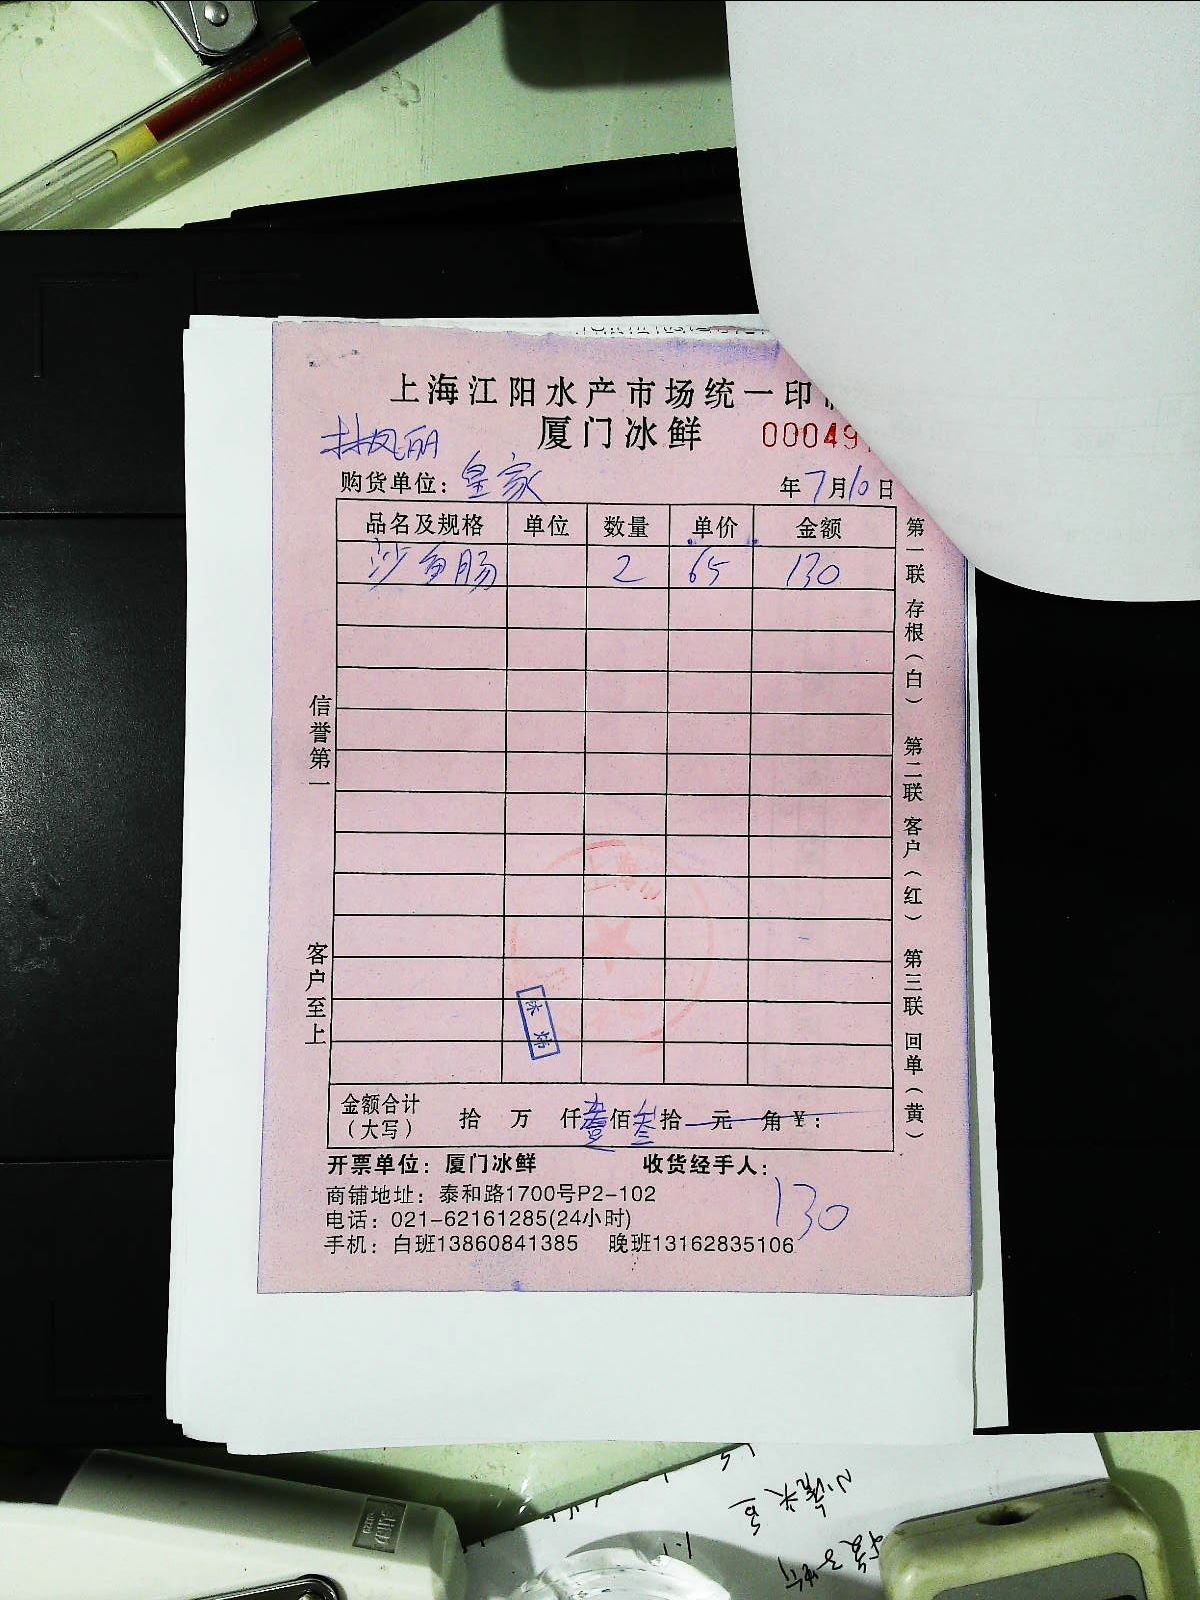 上海江阳水产市场统一印
厦门冰鲜
00049
林凤丽
购货单位：皇家
年7月10日
品名及规格 单位 数量 单价 金额
沙鱼肠 2 65 130
信誉第一
客户至上
第一联 存根（白） 第二联 客户（红） 第三联 回单（黄）
上海
金额合计（大写） 拾 万 仟壹佰叁拾 元 角 ¥：
开票单位：厦门冰鲜 收货经手人：
130
商铺地址：泰和路1700号P2-102
电话：021-62161285(24小时)
手机：白班13860841385 晚班13162835106